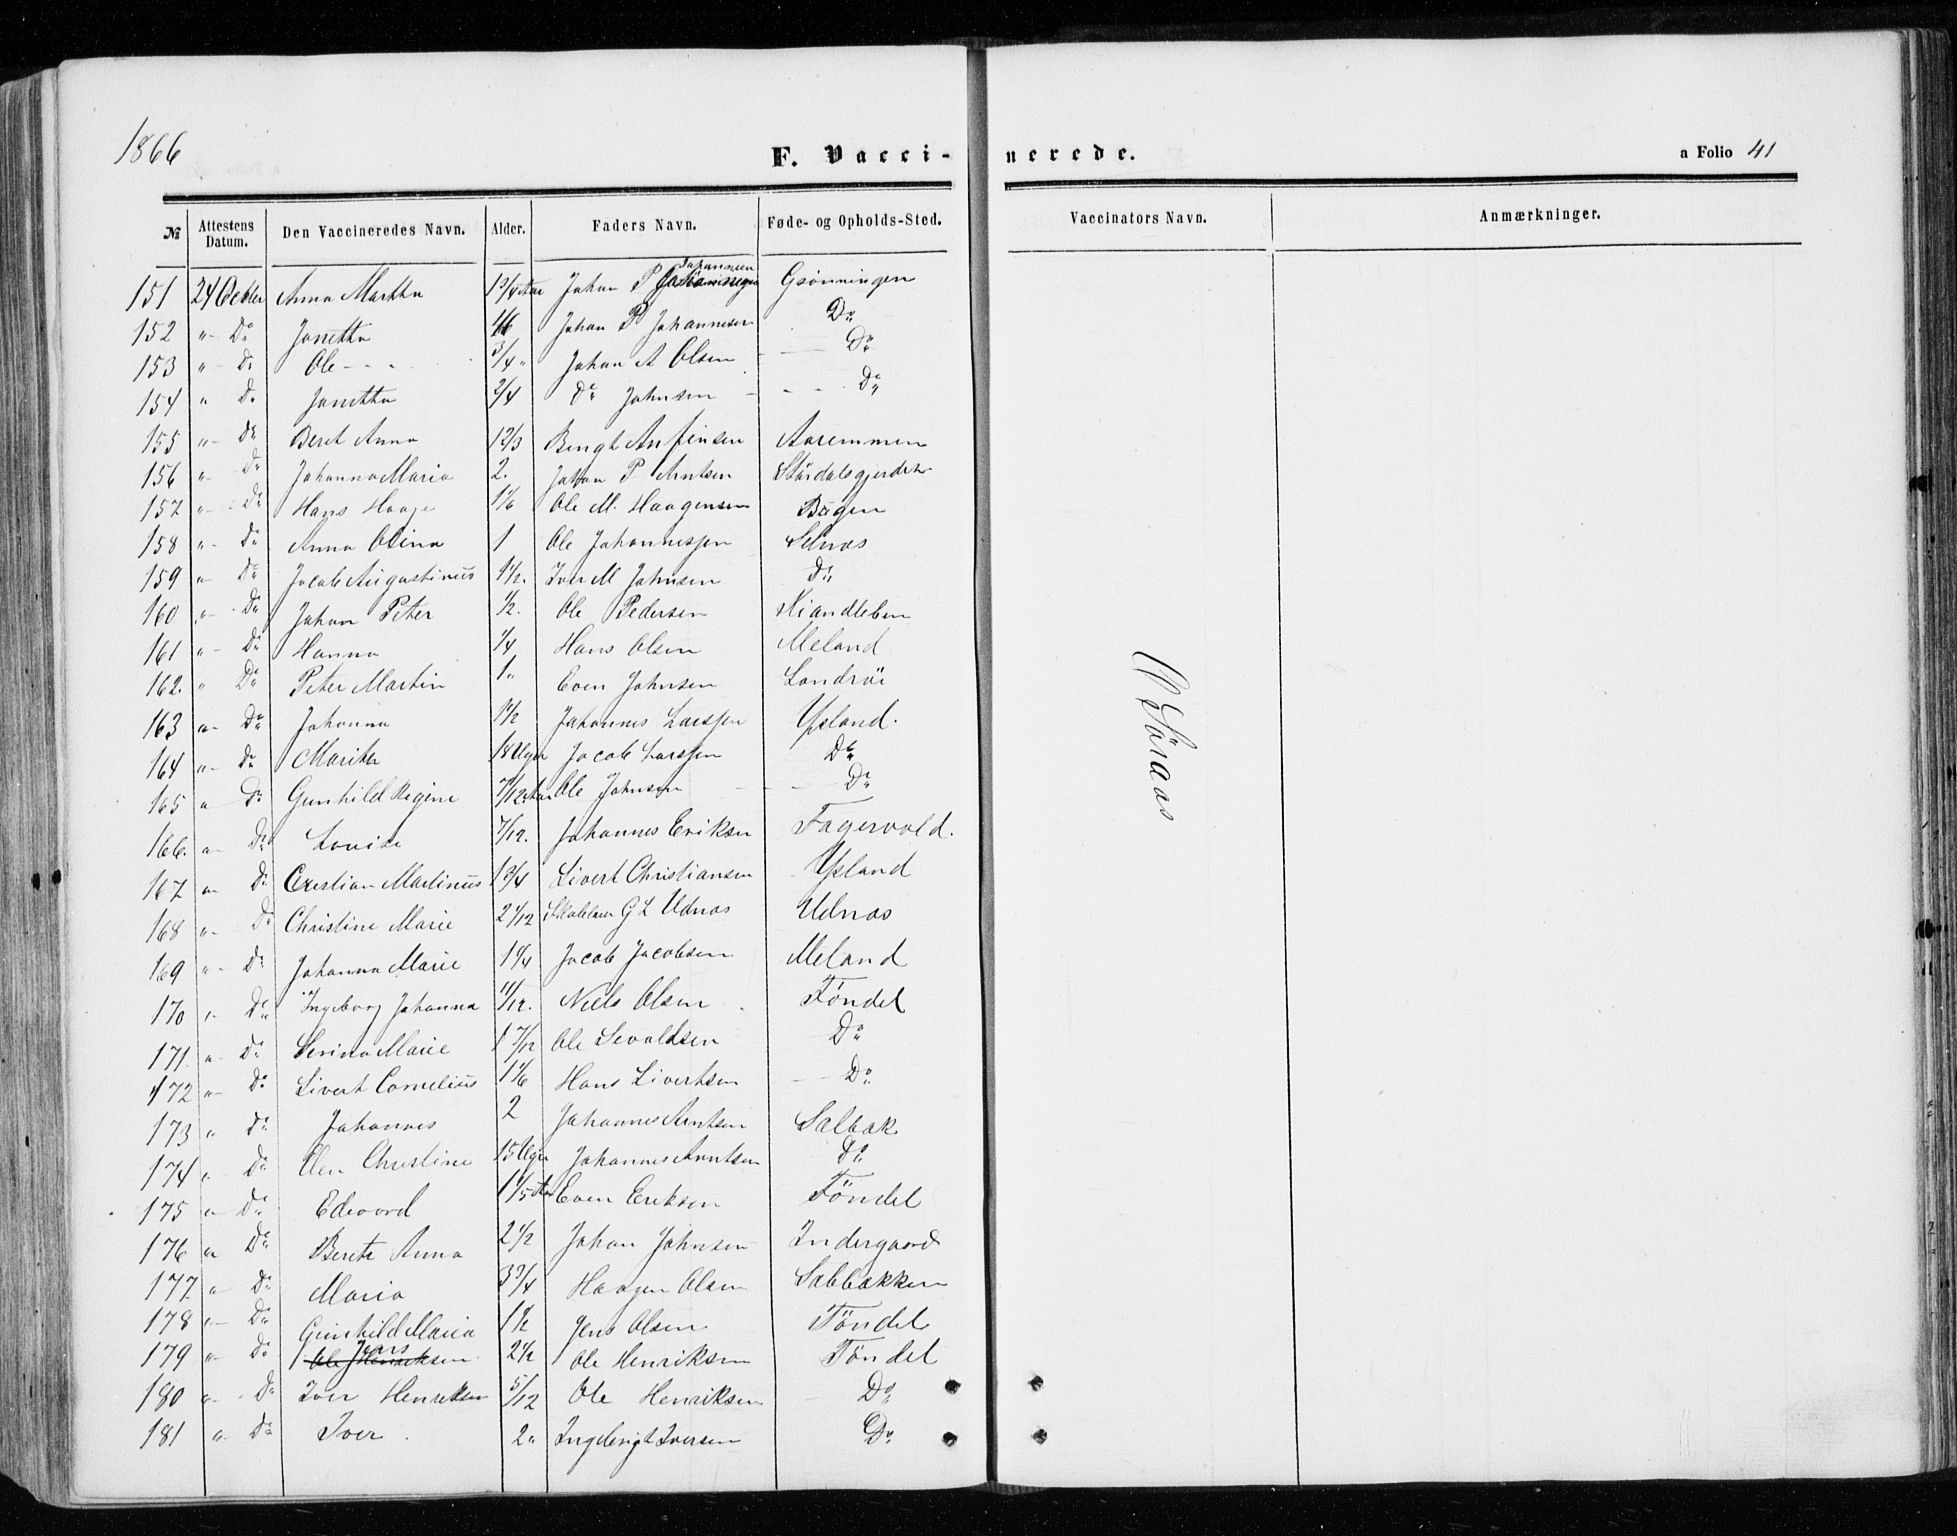 1866
F. Vaccinerede.
a Folio 41
№ Attestens Datum. Den Vaccineredes Navn. Alder. Faders Navn. Føde- og Opholds-Sted. Vaccinators Navn. Anmærkninger.
151 24 Octbr Anna Martha 1 3/4 Aar Johan P Johannsen Grønningen
152 " Do Janetta 1/6 Johan P Johannesen Do
153 " Do Ole 3/4 Johan A Olsen Do
154 " Do Janetta 2/4 Do Johnsen Do
155 " Do Beret Anna 1 2/3 Bengt Anfinsen Aaremmen
156 " Do Johanna Maria 2. Johan P Arntsen Stårdalsgjerdet
157 " Do Hans Haage 1 1/6 Ole M. Haagensen Bugen
158 " Do Anna Olina 1 Ole Johannessen Selnæs
159 " Do Jacob Augustinus 1 1/2. Iver M Johnsen Do
160 " Do Johan Peter 1/2. Ole Pedersen
161 " Do Hanna 1/4 Hans Olsen Meland
162. " Do Peter Martin 1 " Even Johnsen Landröe
163 " Do Johanna 1 1/2 Johannes Larssen Ysland.
164 " Do Marith 18 Uger Jacob Larssen Do
165 " Do Gunhild Regine 7/12 Aar Ole Johnsen Do
166. " Do Lovise 7/12. Johannes Eriksen Fagervold.
167 " Do Cristian Martinus 1 3/4 Sivert Christiansen Ysland
168 " Do Christine Marie 2 1/12 Skolelærer G L Udnæs Udnæs
169 " Do Johanna Marie 1 1/4 Jacob Jacobsen Meland
170 " Do Ingeborg Johanna 11/12. Niels Olsen Töndel
171 " Do Serina Marie 1 7/12 Ole Sevaldsen Do
172 " Do Sivert Cornelius 1 1/6 Hans Sivertsen Do
173 " Do Johannes 2 Johannes Arntsen Salbak
174 " Do Elen Christine 15 Uger Johannes Arntsen Do
175 " Do Edevard 1 1/5 Aar Even Eriksen Töndel
176 " Do Berete Anna 2 1/2 Johan Johnsen Indergaard
177 " Do Maria 3 3/4 Haagen Olsen Salbakken
178 " Do Gunhild Maria 1 1/2 Jens Olsen Töndel
179 " Do Ole Henriksen Jens 2 1/2 Ole Henriksen Töndel
180 " Do Iver Henriksen 5/12 Ole Henriksen Do
181 " Do Iver 2 " Ingebrigt Iversen Do
Söraas